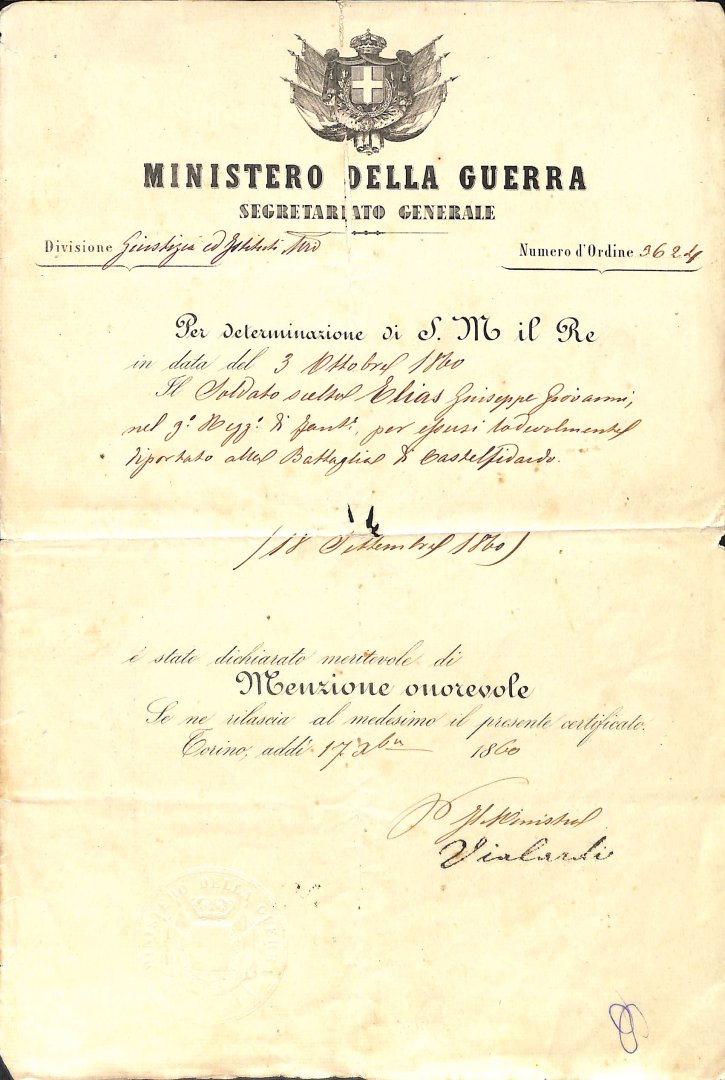 MINISTERO DELLA GUERRA
SEGRETARIATO GENERALE
Divisione Giustizia ed Istituti
Numero d'Ordine 3624
Per determinazione di S. M il Re
in data del 3 Ottobre 1860
Il Soldato scelto Elias Giuseppe Giovanni,
nel 9º Regg.º di fant.ª per essersi lodevolmente
diportato alla Battaglia di Castelfidardo.
(18 Settembre 1860)
è stato dichiarato meritevole di
Menzione onorevole
Se ne rilascia al medesimo il presente certificato.
Torino, addì 17 Xbre 1860
Il Ministro
Vialardi
MINISTERO DELLA GUERRA